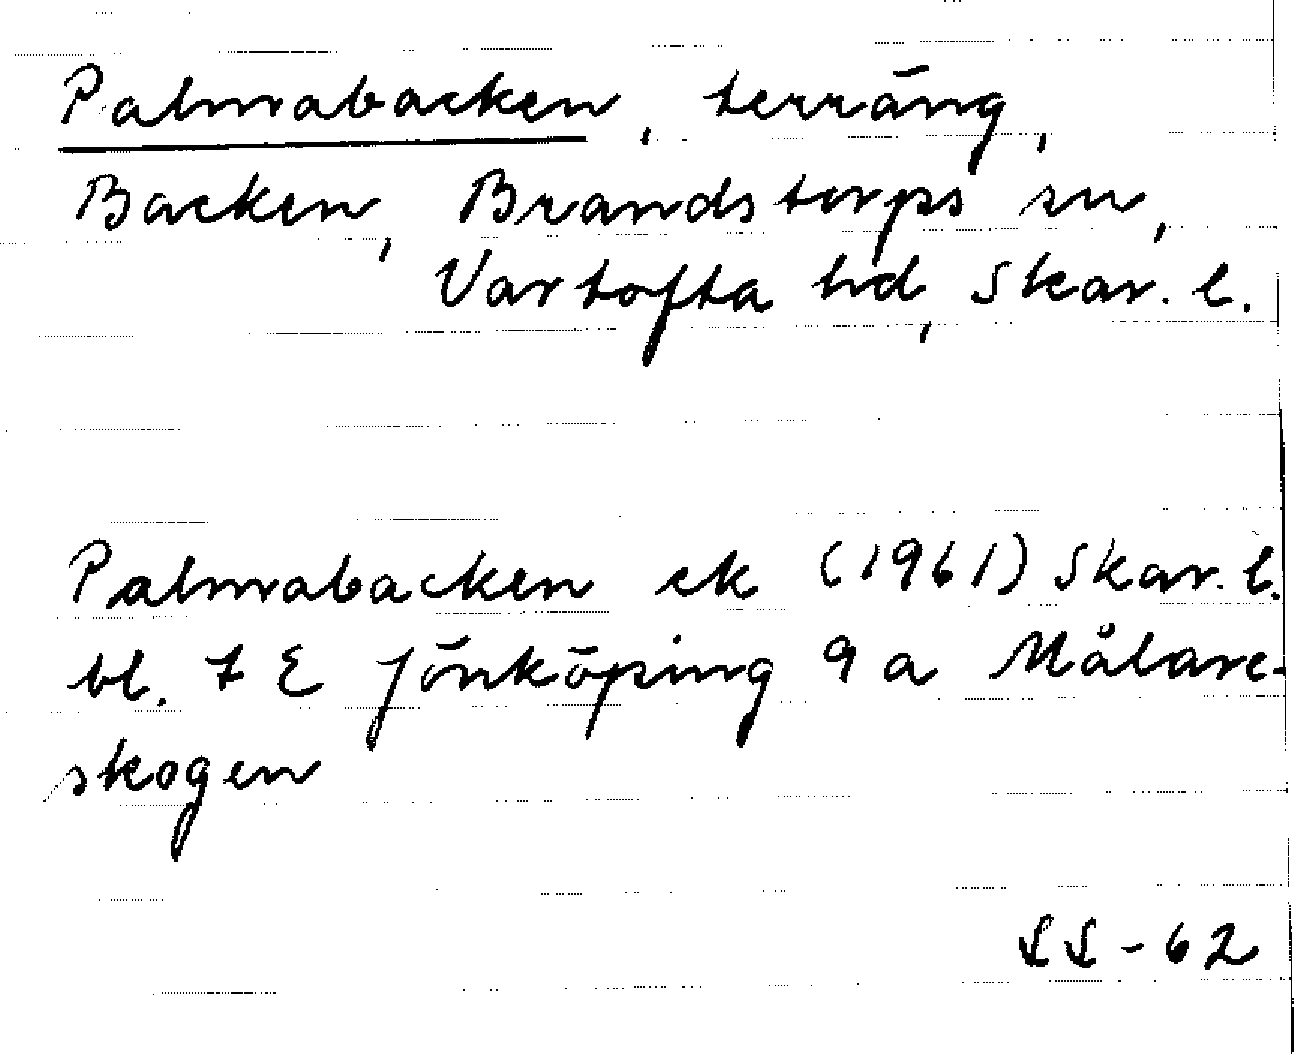 Palmabacken, terräng,
Backen, Brandstorps sn,
Vartofta hd, Skar. l.
Palmabacken ek (1961) Skar. l.
bl. 7 E Jönköping 9 a Mölare-
skogen
SS-62